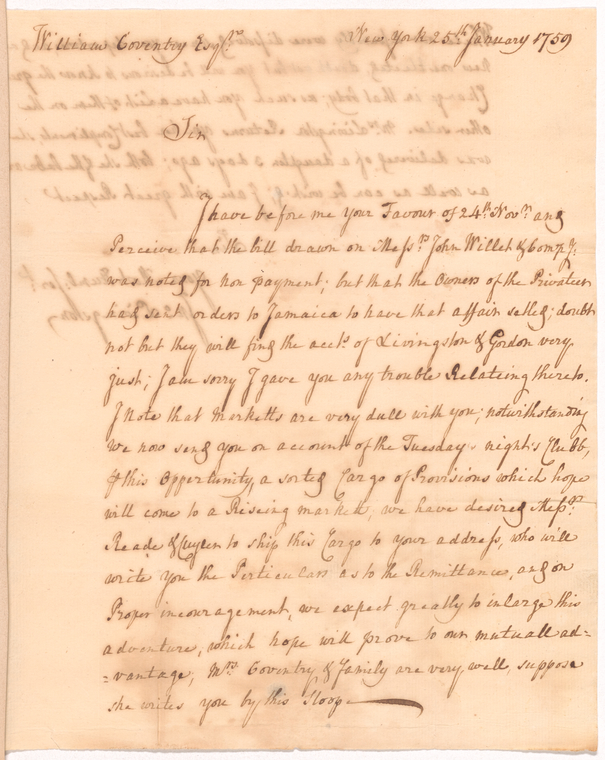 William Coventry Esqr. New York 25th January 1759
Sir
I have before me your Favour of 24th Novr. and
Perceive that the bill drawn on Messrs. John Willet & Compy.
was noted for non payment; but that the Owners of the Privateer
had sent orders to Jamaica to have that affair settled; doubt
not but they will find the accts. of Livingston & Gordon very
just; I am sorry I gave you any trouble Relateing thereto.
I Note that Marketts are very dull with you; notwithstanding
we now send you on account of the Tuesday's night's Clubb,
this Opportunity, a sorted Cargo of Provisions which hope
will come to a Riseing market, we have desired Messrs.
Reade & Cuyler to ship this Cargo to your address, who will
write you the Perticulars as to the Remittance, and on
Proper incouragement, we expect greatly to inlarge this
adventure, which hope will prove to our mutuall ad=
=vantage; Mrs. Coventry & Family are very well, suppose
she writes you by this Sloop